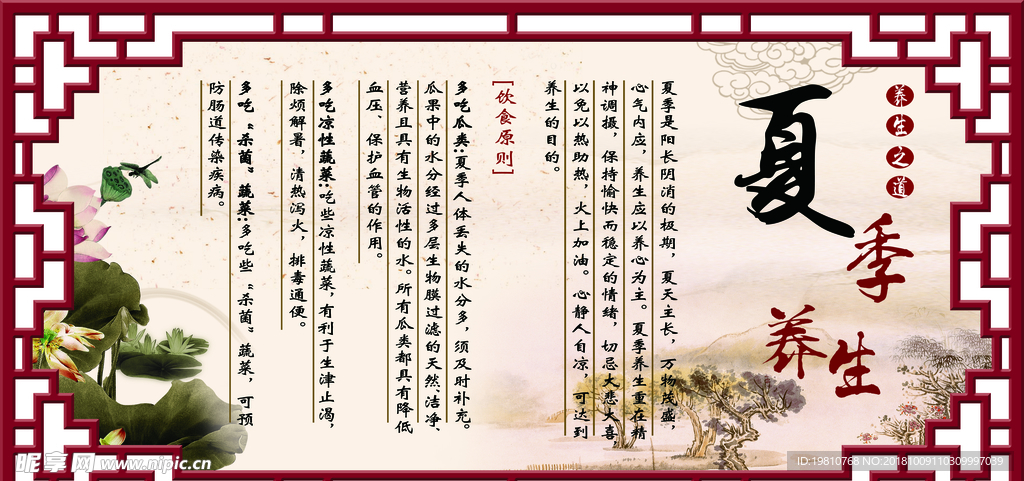 夏
季
养
生
养生之道
夏季是阳长阴消的极期，夏天主长，万物茂盛，
心气内应，养生应以养心为主。夏季养生重在精
神调摄，保持愉快而稳定的情绪，切忌大悲大喜
以免以热助热，火上加油。心静人自凉，可达到
养生的目的。
[饮食原则]
多吃瓜类:夏季人体丢失的水分多，须及时补充。
瓜果中的水分经过多层生物膜过滤的天然、洁净、
营养且具有生物活性的水。所有瓜类都具有降低
血压、保护血管的作用。
多吃凉性蔬菜:吃些凉性蔬菜，有利于生津止渴，
除烦解暑，清热泻火，排毒通便。
多吃“杀菌”蔬菜:多吃些“杀菌”蔬菜，可预
防肠道传染疾病。
昵享网 www.nipic.cn
ID:19810768 NO:20181009110309997039